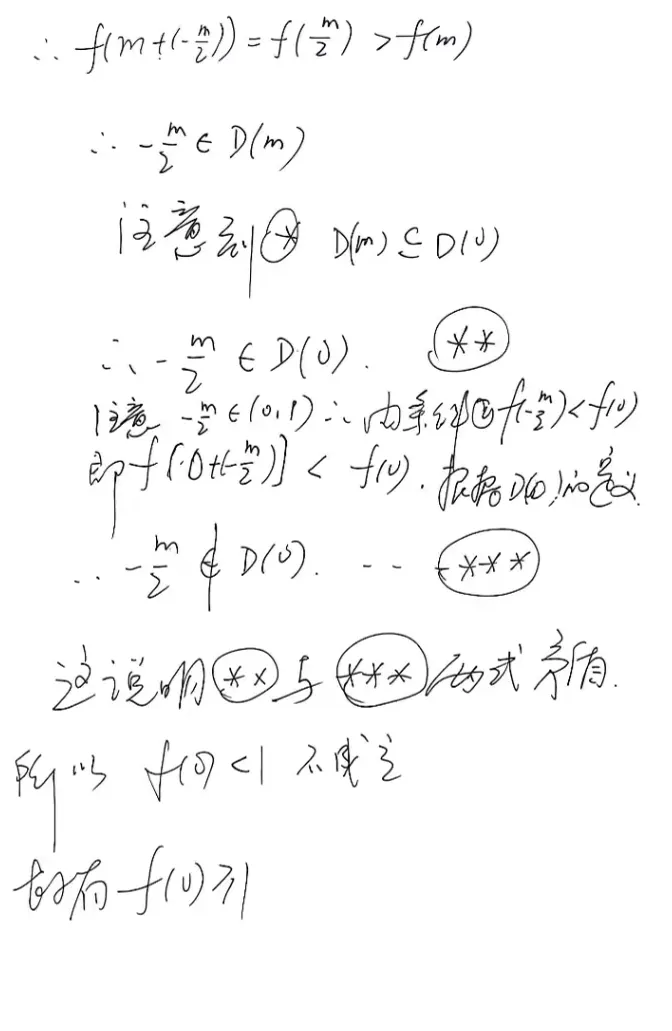 ∴ f(m+(-m/2)) = f(m/2) > f(m)
∴ -m/2 ∈ D(m)
注意到 ⊛ D(m) ⊆ D(0)
∴ -m/2 ∈ D(0). (**)
注意 -m/2 ∈ (0,1) ∴ 由条件② f(-m/2) < f(0)
即 f[0+(-m/2)] < f(0). 根据D(0)的定义
∴ -m/2 ∉ D(0). -- (***)
这说明(**)与(***)两式矛盾.
所以 f(0)<1 不成立
故有 f(0)≥1